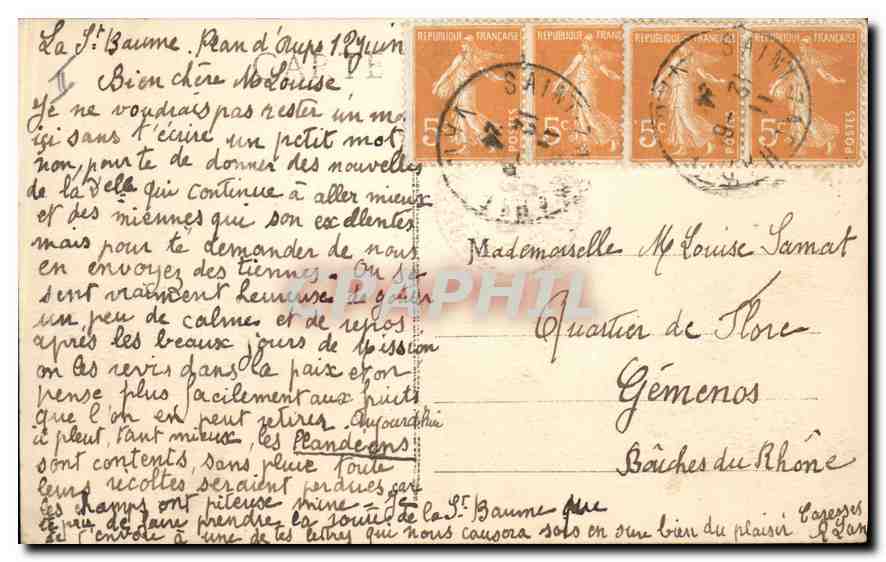 La St Baume. Plan d'Aups 12 Juin
CARTE
Bien chère M Louise
Je ne voudrais pas rester un mo
ici sans t'écrire un petit mot,
non, pour te de donner des nouvelles
de la qui continue à aller mieux
et des miennes qui son excellentes
mais pour te demander de nous
en envoyez des tiennes. On se
sent vraiment heureuse de goûter
un peu de calme et de repos
après les beaux jours de Mission
on les revis dans la paix et on
pense plus facilement aux fruits
que l'on en peut retirer. Aujourd'hui
il pleut, tant mieux, les
sont contents, sans pluie toute
leurs récoltes seraient perdues car
les champs ont piteuse mine - Je
te prie de faire prendre la de la St Baume que
je t'envoie à une de tes lettres qui nous causera sois en sure bien du plaisir
Caresses
REPUBLIQUE FRANÇAISE
5c POSTES
REPUBLIQUE FRANÇAISE
5c POSTES
REPUBLIQUE FRANÇAISE
5c POSTES
REPUBLIQUE FRANÇAISE
5c POSTES
SAINT-ZA
VAR
SAINT-ZA
Mademoiselle M Louise Samat
Quartier de Flore
Gémenos
Bouches du Rhône
CPAPHIL